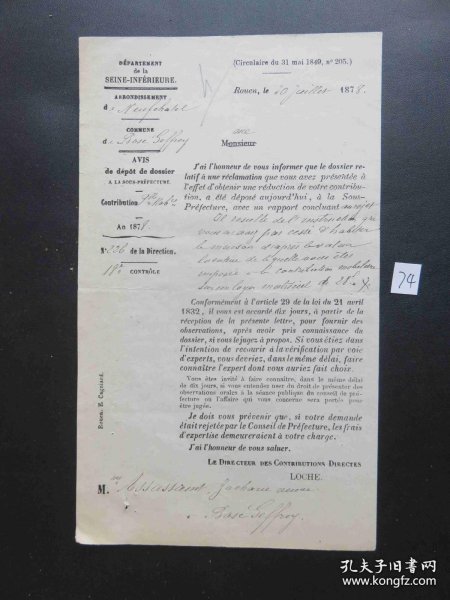 DÉPARTEMENT
de la
SEINE-INFÉRIEURE.
ARRONDISSEMENT
de Neufchatel
COMMUNE
d Bosc Geffroy
AVIS
de dépôt de dossier
A LA SOUS-PRÉFECTURE.
Contribution
An 1878.
N° 226 de la Direction.
18e CONTRÔLE
(Circulaire du 31 mai 1849, n° 205.)
Rouen, le 20 juillet 1878.
Monsieur
J'ai l'honneur de vous informer que le dossier re-
latif à une réclamation que vous avez présentée à
l'effet d'obtenir une réduction de votre contribu-
tion, a été déposé aujourd'hui, à la Sous-
Préfecture, avec un rapport concluant au rejet
Il résulte de l'instruction que
vous n'avez pas cessé d'habiter
la maison d'après la valeur
locative de laquelle vous êtes
imposée à la contribution mobilière
sur un loyer matriciel de 28f.
Conformément à l'article 29 de la loi du 21 avril
1832, il vous est accordé dix jours, à partir de la
réception de la présente lettre, pour fournir des
observations, après avoir pris connaissance du
dossier, si vous le jugez à propos. Si vous étiez dans
l'intention de recourir à la vérification par voie
d'experts, vous devriez, dans le même délai, faire
connaître l'expert dont vous auriez fait choix.
Vous êtes invité à faire connaître, dans le même délai
de dix jours, si vous entendez user du droit de présenter des
observations orales à la séance publique du conseil de pré-
fecture où l'affaire qui vous concerne sera portée pour
être jugée.
Je dois vous prévenir que, si votre demande
était rejetée par le Conseil de Préfecture, les frais
d'expertise demeureraient à votre charge.
J'ai l'honneur de vous saluer.
LE DIRECTEUR DES CONTRIBUTIONS DIRECTES
LOCHE.
M. veuve
à Bosc Geffroy.
Rouen. E. Cagniard.
74
孔夫子旧书网
www.kongfz.com